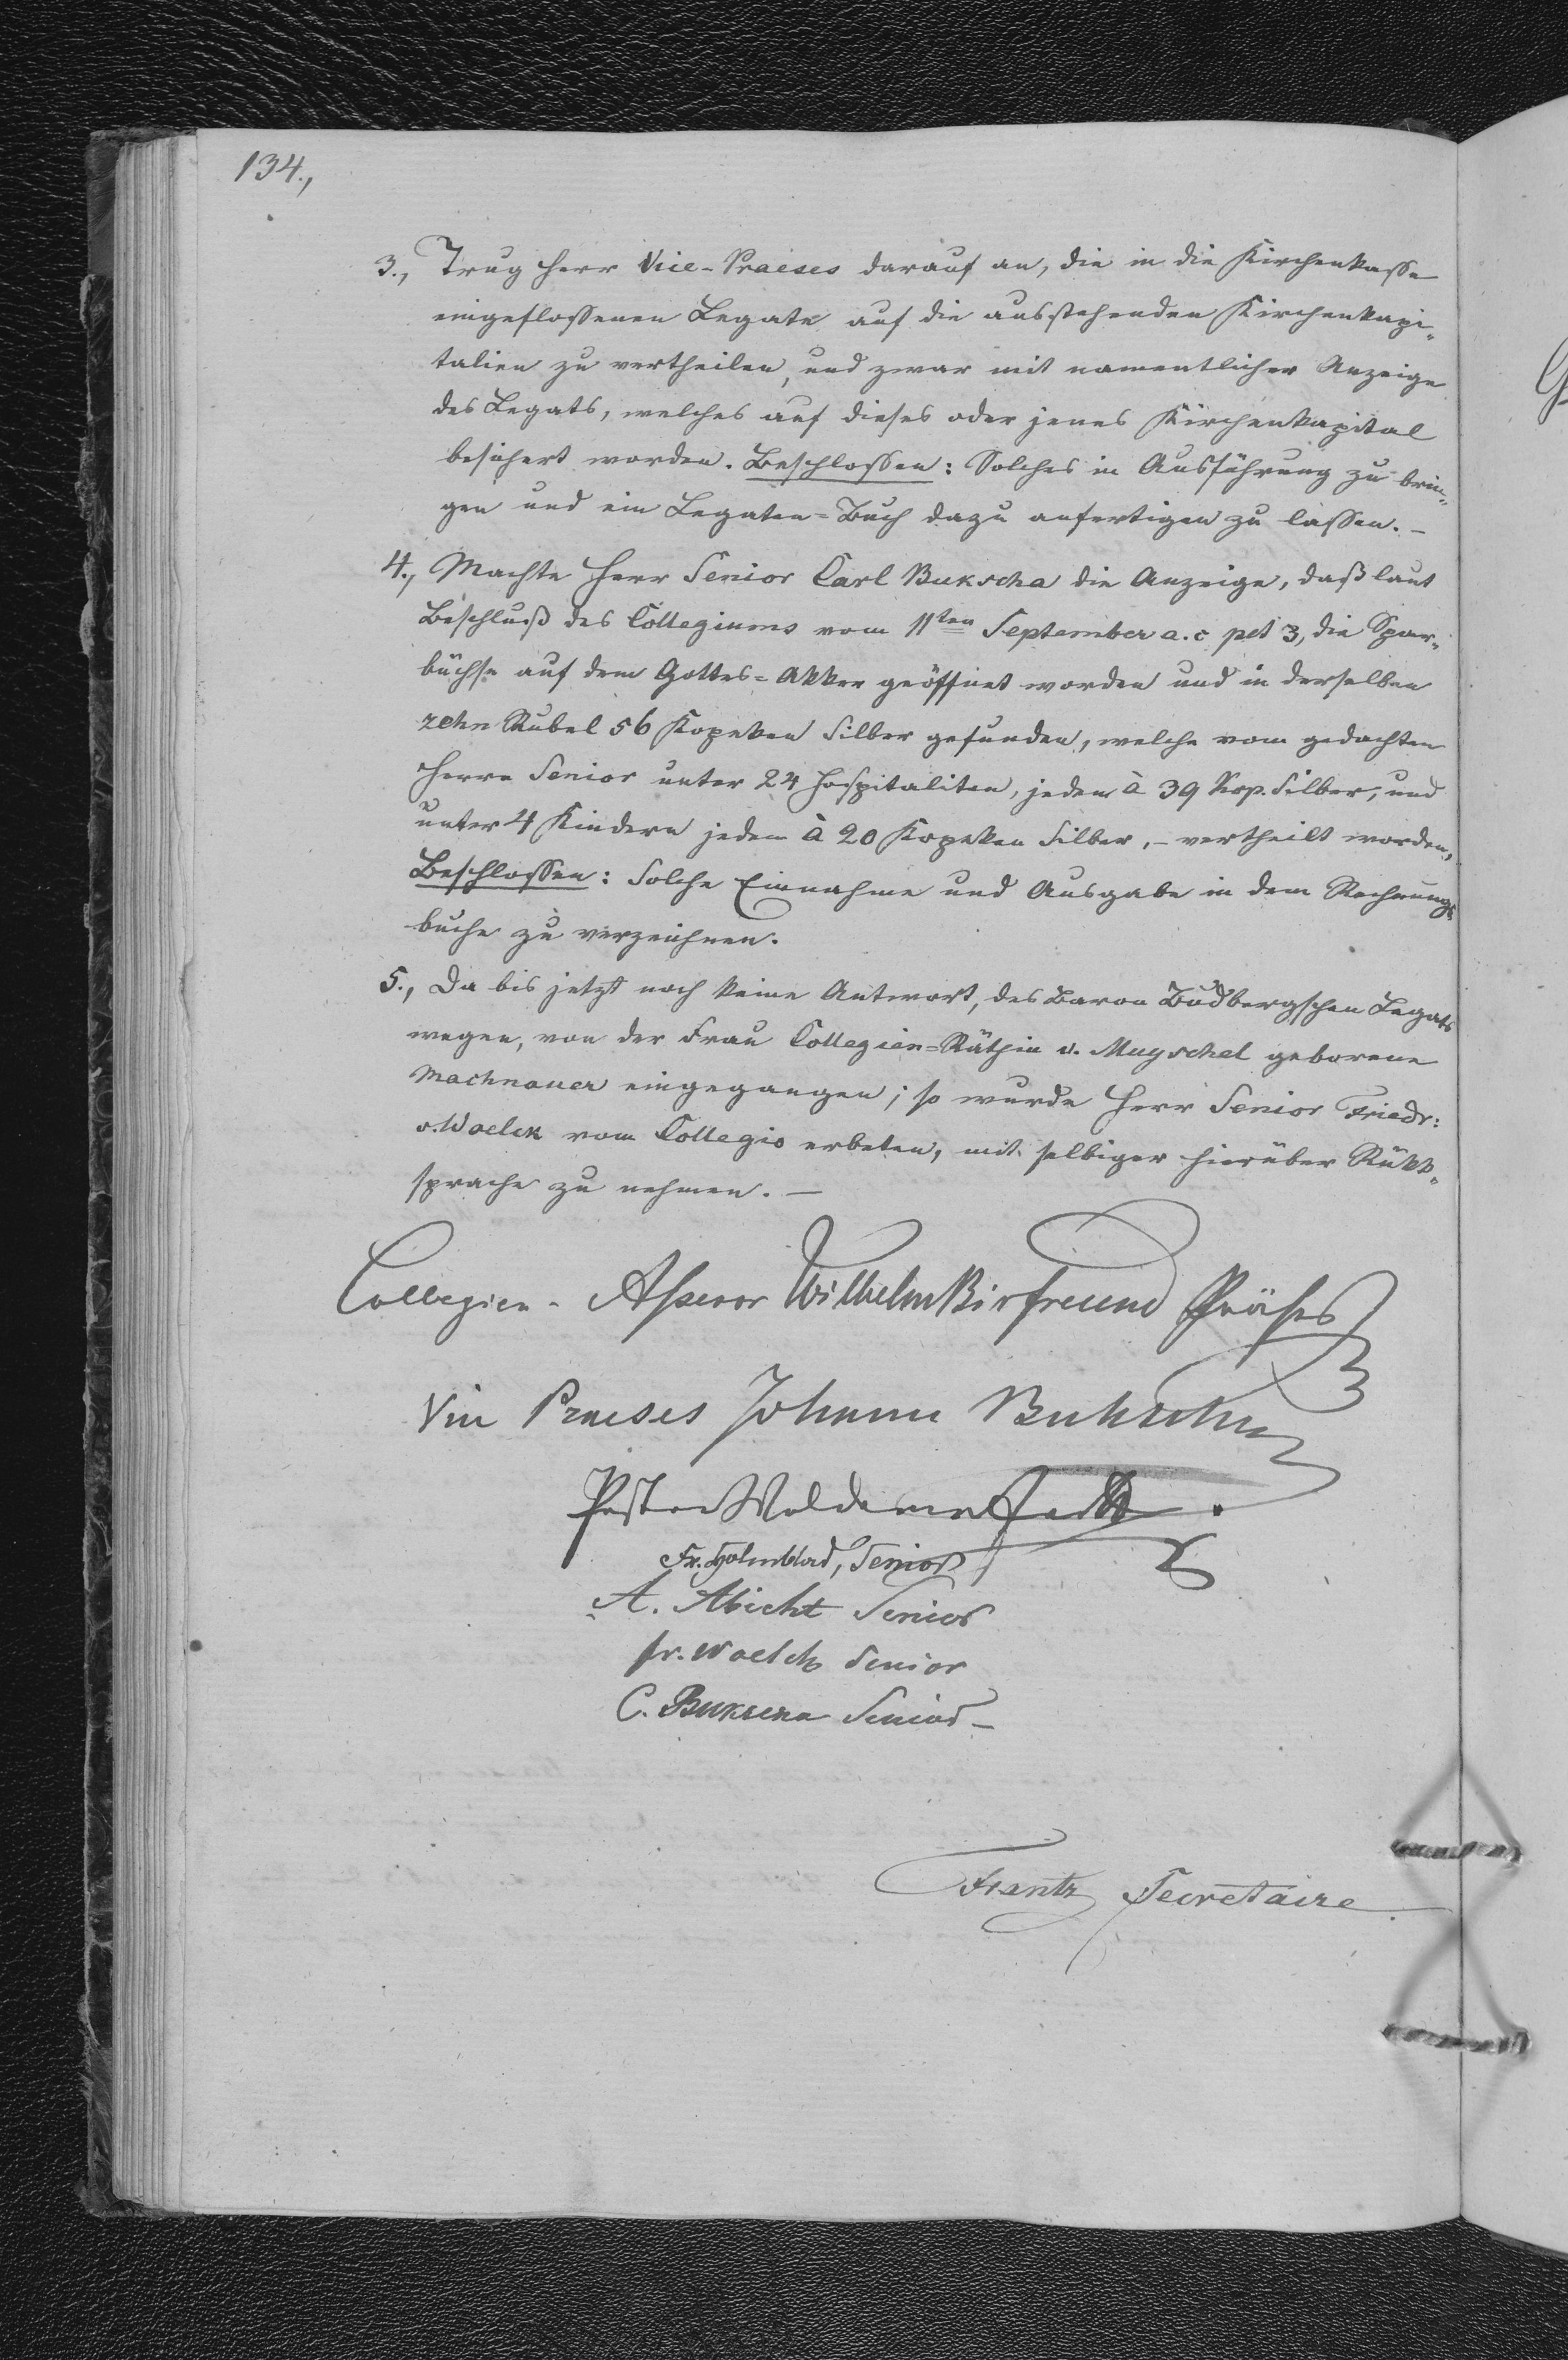 134.,
3., Trug Herr Vice-Praeses darauf an, die in die Kirchenkasse
eingeflossenen Legate auf die ausstehenden Kirchenkapi-
talien zu vertheilen, und zwar mit namentlicher Anzeige
des Legats, welches auf dieses oder jenes Kirchenkapital
besichert worden. Beschlossen: Solches in Ausführung zu brin-
gen und ein Legaten-Buch dazu anfertigen zu lassen. -
4., Machte Herr Senior Carl Bukscha die Anzeige, daß laut
Beschluß des Collegiums vom 11ten September a. c pct 3, die Spar-
büchse auf dem Gottes-Akker geöffnet worden und in derselben
zehn Rubel 56 Kopeken Silber gefunden, welche vom gedachten
Herrn Senior unter 24 Hospitaliten, jedem à 39 Kop. Silber, und
unter 4 Kindern jedem à 20 Kopeken Silber, - vertheilt worden,
Beschlossen: Solche Einnahme und Ausgabe in dem Rechnungs
buche zu verzeichnen.
5., Da bis jetzt noch keine Antwort, des Baron Budbergschen Legats
wegen, von der Frau Collegien-Räthin v. Muyschel geborene
Machnauer eingegangen; so wurde Herr Senior Friedr:
v. Woelck vom Collegio erbeten, mit selbiger hierüber Rükk-
sprache zu nehmen. -
Collegien-Assessor Wilhelm Birfreund Präses
Vice Praeses Johann Bukscha
Pastor Woldemar
Fr. Holmblad, Senior
A. Abicht Senior
fr. Woelck Senior
C. Bukscha Senior -
Frantz Secretaire.